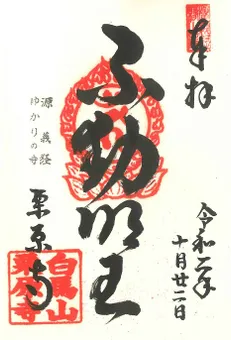 奉拝
令和二年
十月廿二日
不動明王
源義経
ゆかりの寺
栗原寺